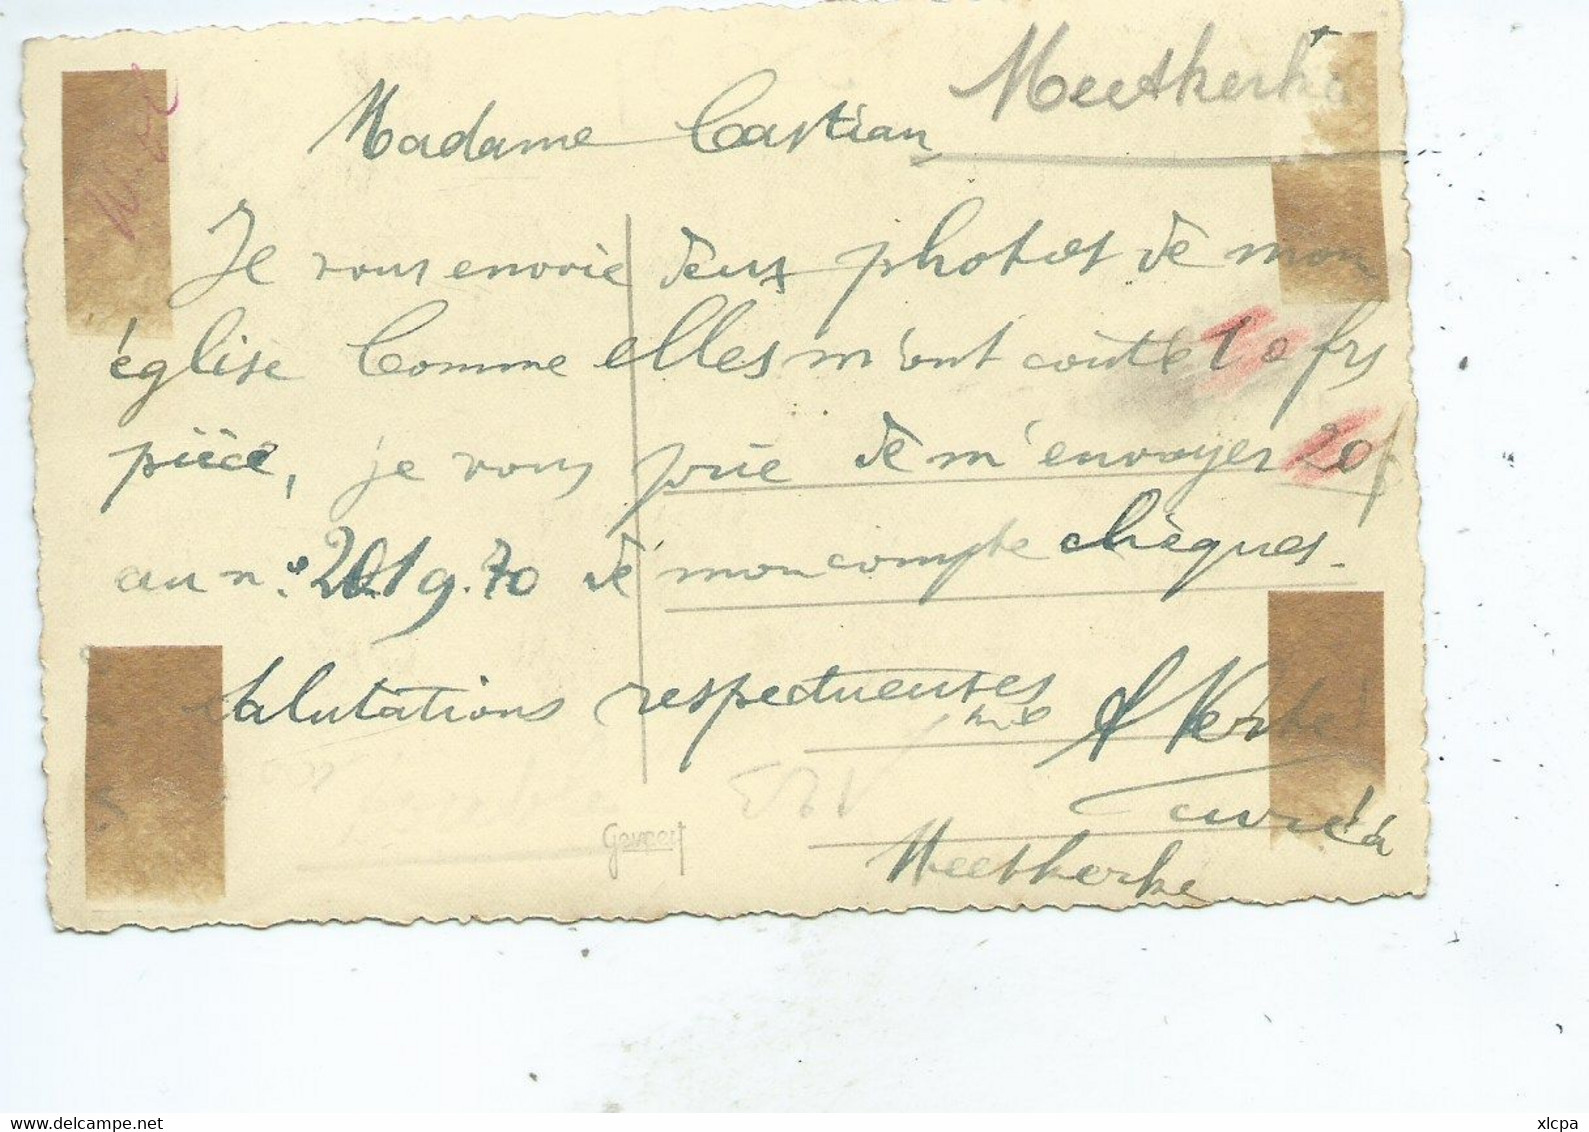 Meetkerke
Madame Castian
Je vous envoie deux photos de mon
église Comme elles m'ont coûté 10 frs
pièce, je vous prie de m'envoyer 20f
au n.° 2019.70 de mon compte chèques.
salutations respectueuses
curé à
Meetkerke
Gevaert
123
www.delcampe.net
xlcpa